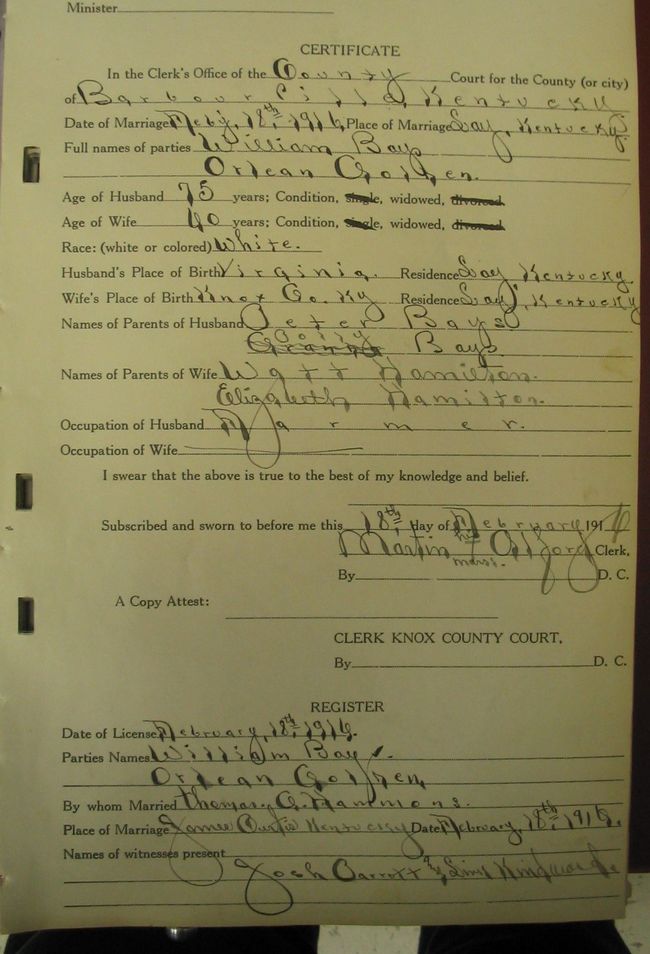 Minister
CERTIFICATE
In the Clerk's Office of the County Court for the County (or city)
of Barbourville, Kentucky
Date of Marriage Feby, 18th, 1916, Place of Marriage Lay, Kentucky.
Full names of parties William Bays
Orlean Golden.
Age of Husband 75 years; Condition, single, widowed, divorced.
Age of Wife 40 years; Condition, single, widowed, divorced.
Race: (white or colored) White.
Husband's Place of Birth Virginia. Residence Lay Kentucky.
Wife's Place of Birth Knox Co. Ky Residence Lay, Kentucky
Names of Parents of Husband Peter Bays
Bays
Names of Parents of Wife Watt Hamilton.
Elizabeth Hamilton.
Occupation of Husband Farmer.
Occupation of Wife
I swear that the above is true to the best of my knowledge and belief.
Subscribed and sworn to before me this 18th, day of February 1916
Martin his Clerk,
mark.
By D. C.
A Copy Attest:
CLERK KNOX COUNTY COURT,
By D. C.
REGISTER
Date of License February, 18th, 1916.
Parties Names William Bays.
Orlean Golden,
By whom Married Thomas, G. Hammons.
Place of Marriage James Kentucky Date February, 18th, 1916.
Names of witnesses present
Josh